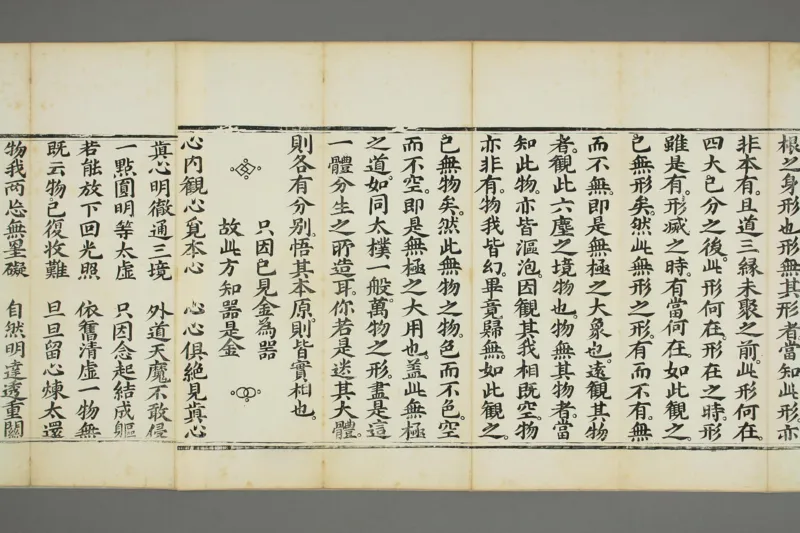 根之身形也形無其形者當知此形。亦
非本有。且道三緣未聚之前。此形何在。
四大已分之後。此形何在。形在之時。形
雖是有。形滅之時。有當何在。如此觀之
已無形矣。然此無形之形。有而不有無
而不無。即是無極之大象也。遠觀其物
者。觀此六塵之境物也。物無其物者。當
知此物。亦皆漚泡。因觀其我相既空。物
亦非有。物我皆幻。畢竟歸無。如此觀之。
已無物矣。然此無物之物。色而不色。空
而不空。即是無極之大用也。蓋此無極
之道。如同太樸一般。萬物之形。盡是這
一體分生之所造耳。你若是迷其大體。
則各有分別。悟其本原。則皆實相也。
只因已見金為器
故此方知器是金
心內觀心覓本心 心心俱絕見真心
真心明徹通三境 外道天魔不敢侵
一點圓明等太虛 只因念起結成軀
若能放下回光照 依舊清虛一物無
既云物已復收難 旦旦留心煉太還
物我兩忘無罣礙 自然明達透重關